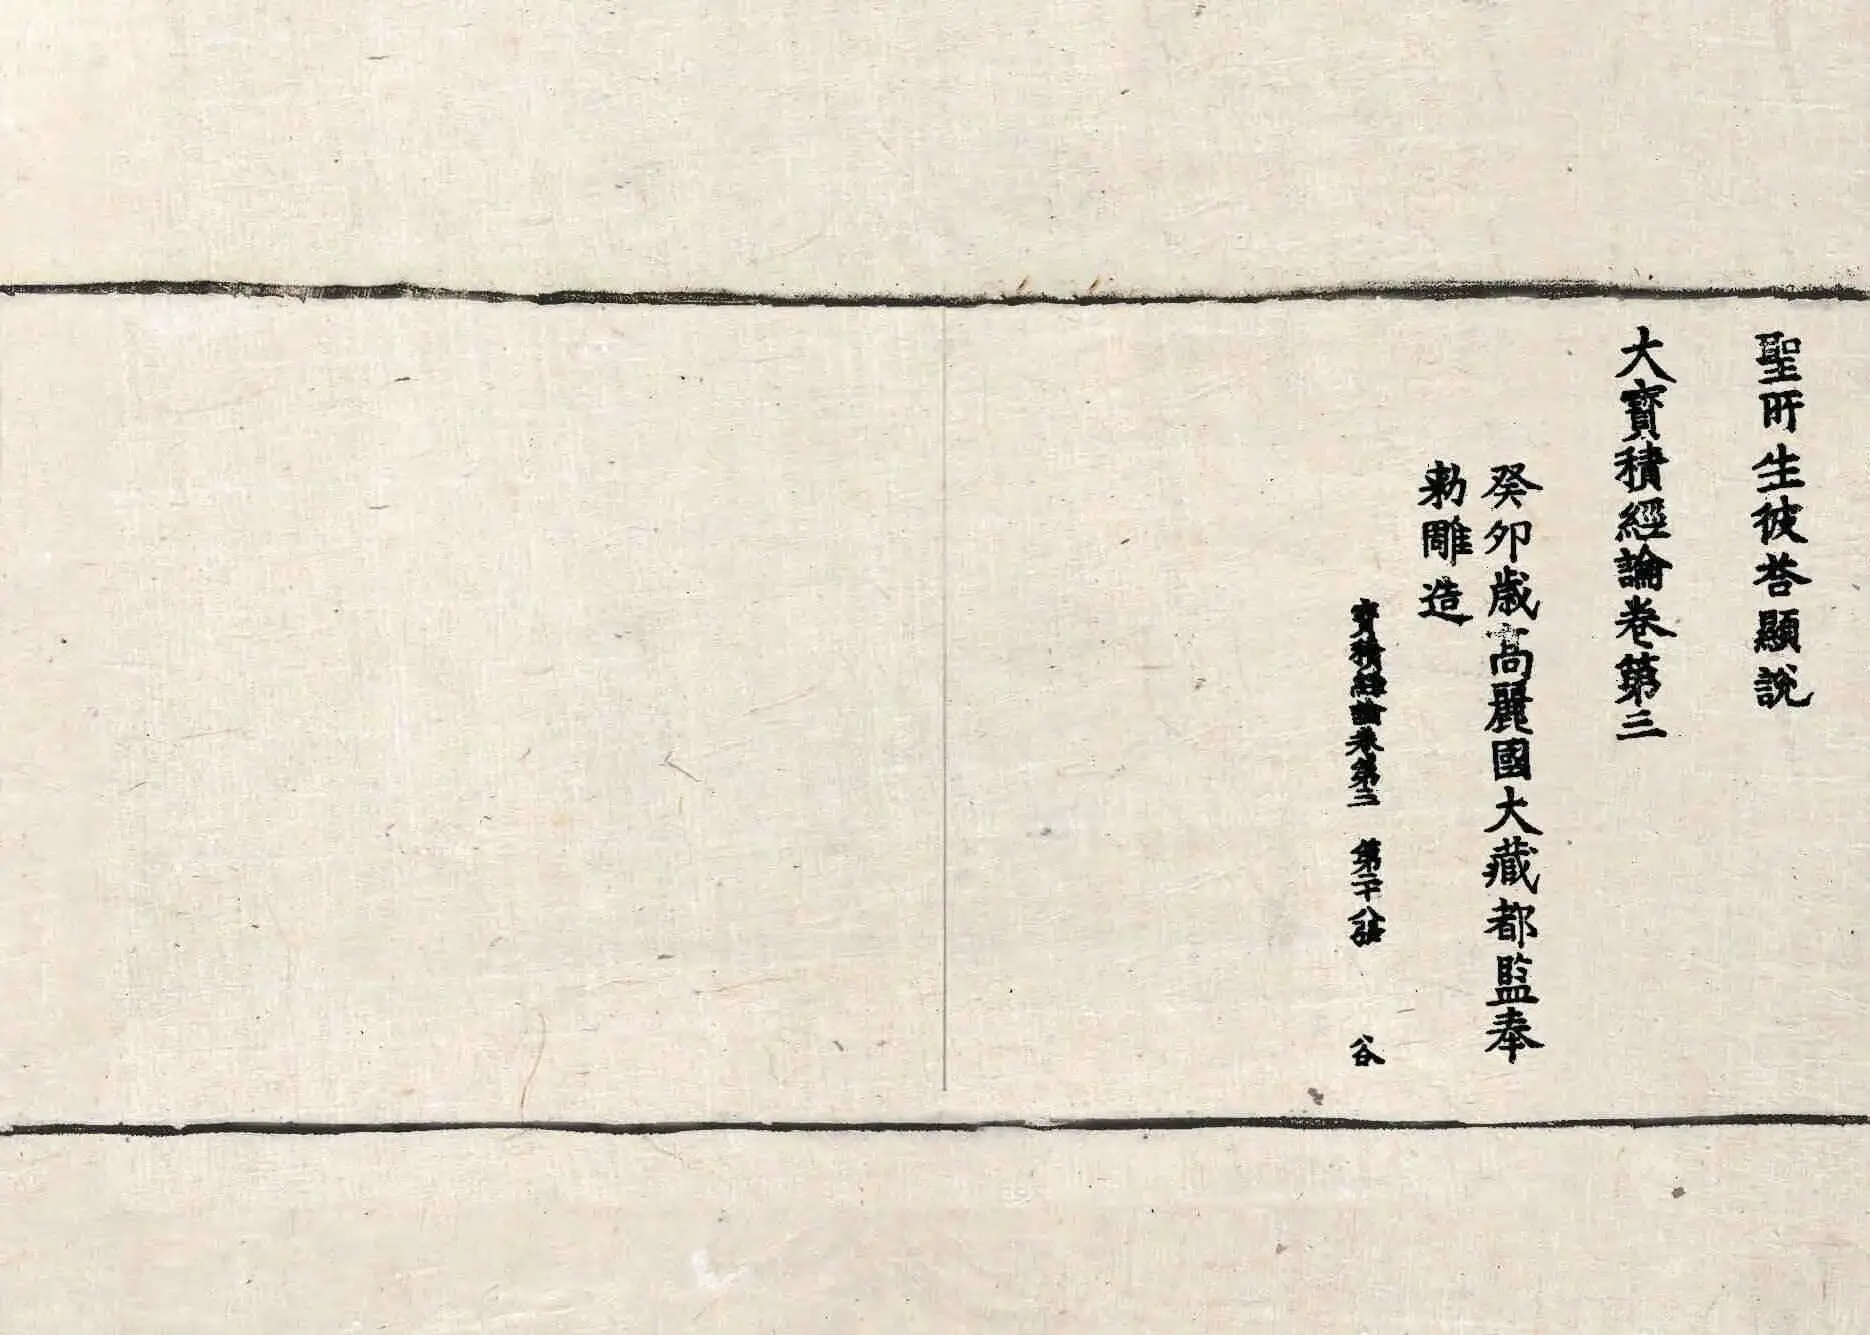 聖所生彼荅顯說
大寶積經論卷第三
癸卯歲高麗國大藏都監奉
勅雕造
寶積經論卷第三　第二十八張　谷